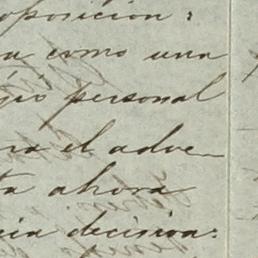 oposicion:
a como una
gio personal
ra el adve-
ta ahora
cia decisiva: